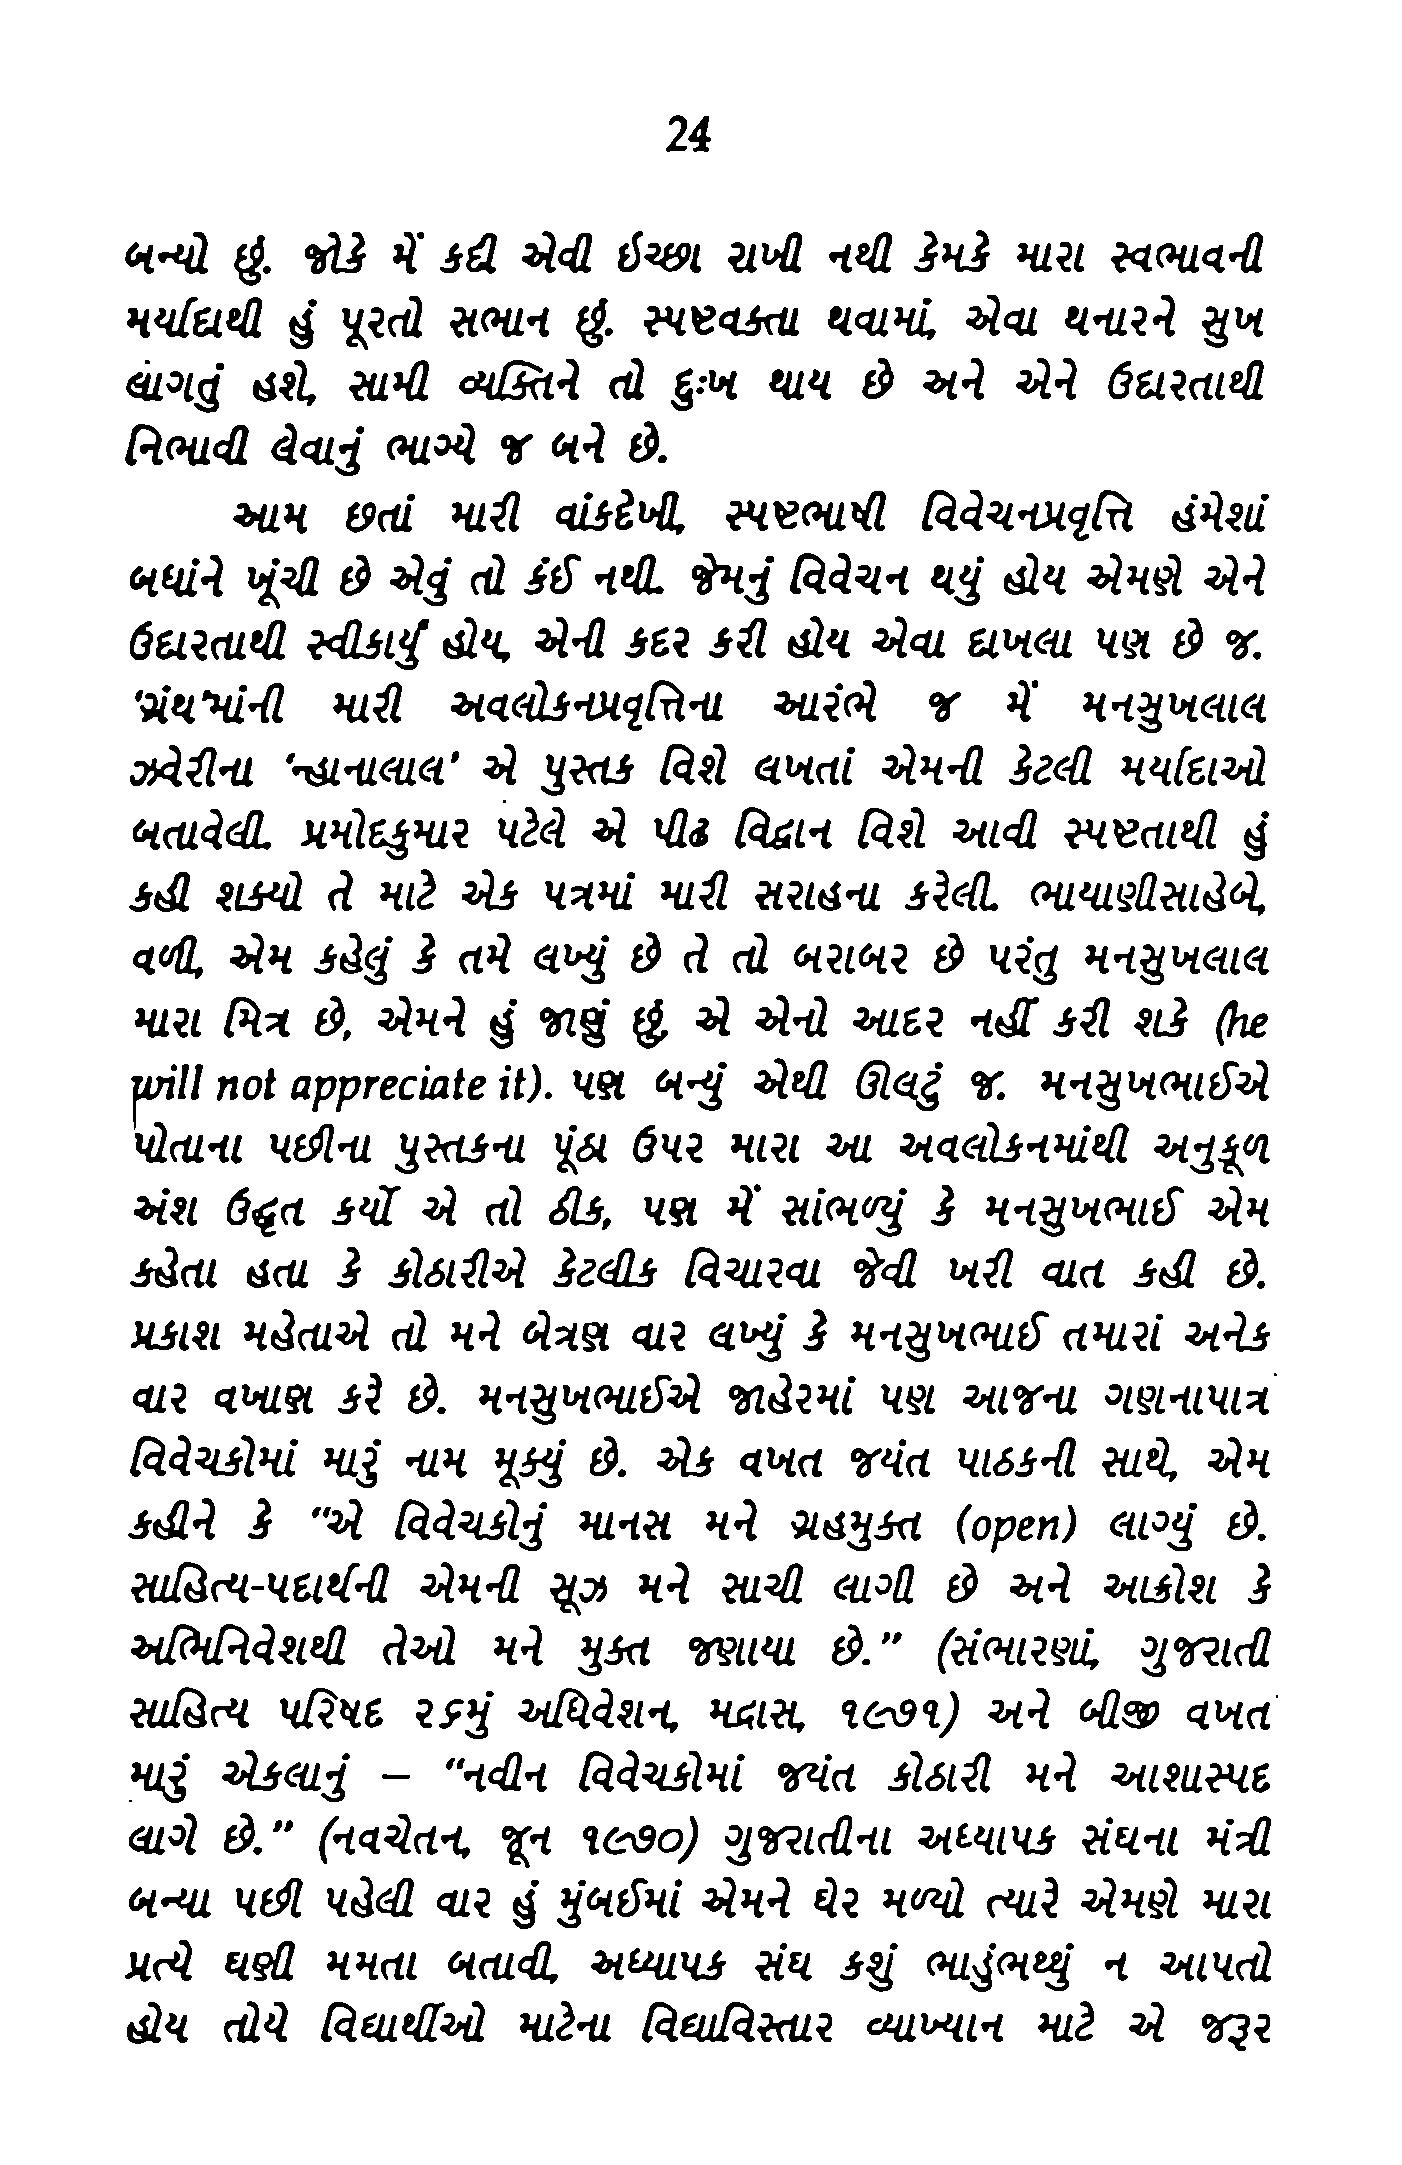 24
બન્યો છું. જોકે મેં કદી એવી ઈચ્છા રાખી નથી કેમકે મારા સ્વભાવની
મર્યાદાથી હું પૂરતો સભાન છું. સ્પષ્ટવક્તા થવામાં, એવા થનારને સુખ
લાગતું હશે, સામી વ્યક્તિને તો દુઃખ થાય છે અને એને ઉદારતાથી
નિભાવી લેવાનું ભાગ્યે જ બને છે.
આમ છતાં મારી વાંકદેખી, સ્પષ્ટભાષી વિવેચનપ્રવૃત્તિ હંમેશાં
બધાંને ખૂંચી છે એવું તો કંઈ નથી. જેમનું વિવેચન થયું હોય એમણે એને
ઉદારતાથી સ્વીકાર્યું હોય, એની કદર કરી હોય એવા દાખલા પણ છે જ.
‘ગ્રંથ’માંની મારી અવલોકનપ્રવૃત્તિના આરંભે જ મેં મનસુખલાલ
ઝવેરીના ‘ન્હાનાલાલ’ એ પુસ્તક વિશે લખતાં એમની કેટલી મર્યાદાઓ
બતાવેલી. પ્રમોદકુમાર પટેલે એ પીઢ વિદ્વાન વિશે આવી સ્પષ્ટતાથી હું
કહી શક્યો તે માટે એક પત્રમાં મારી સરાહના કરેલી. ભાયાણીસાહેબે,
વળી, એમ કહેલું કે તમે લખ્યું છે તે તો બરાબર છે પરંતુ મનસુખલાલ
મારા મિત્ર છે, એમને હું જાણું છું, એ એનો આદર નહીં કરી શકે (he
will not appreciate it). પણ બન્યું એથી ઊલટું જ. મનસુખભાઈએ
પોતાના પછીના પુસ્તકના પૂંઠા ઉપર મારા આ અવલોકનમાંથી અનુકૂળ
અંશ ઉદ્ધૃત કર્યો એ તો ઠીક, પણ મેં સાંભળ્યું કે મનસુખભાઈ એમ
કહેતા હતા કે કોઠારીએ કેટલીક વિચારવા જેવી ખરી વાત કહી છે.
પ્રકાશ મહેતાએ તો મને બેત્રણ વાર લખ્યું કે મનસુખભાઈ તમારાં અનેક
વાર વખાણ કરે છે. મનસુખભાઈએ જાહેરમાં પણ આજના ગણનાપાત્ર
વિવેચકોમાં મારું નામ મૂક્યું છે. એક વખત જયંત પાઠકની સાથે, એમ
કહીને કે “એ વિવેચકોનું માનસ મને ગ્રહમુક્ત (open) લાગ્યું છે.
સાહિત્ય-પદાર્થની એમની સૂઝ મને સાચી લાગી છે અને આક્રોશ કે
અભિનિવેશથી તેઓ મને મુક્ત જણાયા છે.” (સંભારણાં, ગુજરાતી
સાહિત્ય પરિષદ ૨૬મું અધિવેશન, મદ્રાસ, ૧૯૭૧) અને બીજી વખત
મારું એકલાનું – “નવીન વિવેચકોમાં જયંત કોઠારી મને આશાસ્પદ
લાગે છે.” (નવચેતન, જૂન ૧૯૭૦) ગુજરાતીના અધ્યાપક સંઘના મંત્રી
બન્યા પછી પહેલી વાર હું મુંબઈમાં એમને ઘેર મળ્યો ત્યારે એમણે મારા
પ્રત્યે ઘણી મમતા બતાવી, અધ્યાપક સંઘ કશું ભાડુંભથ્થું ન આપતો
હોય તોયે વિદ્યાર્થીઓ માટેના વિદ્યાવિસ્તાર વ્યાખ્યાન માટે એ જરૂર